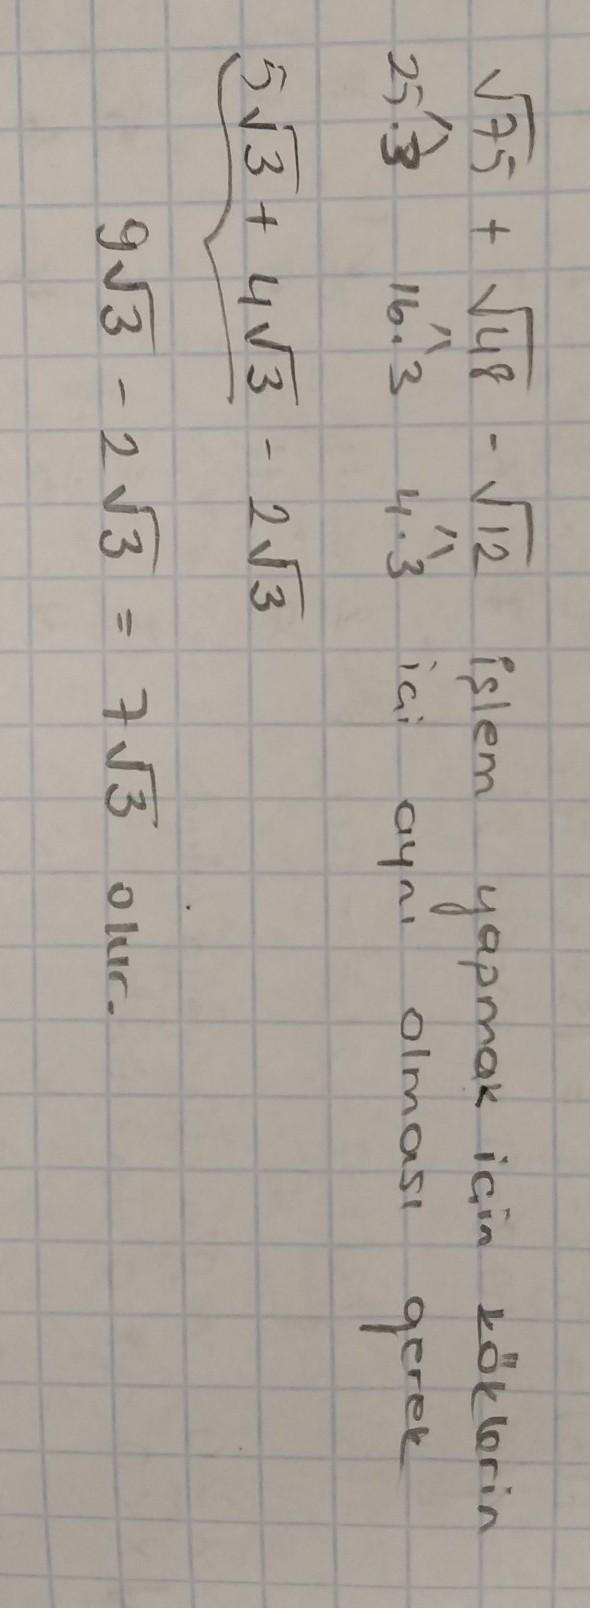 √75 + √48 - √12 işlem yapmak için köklerin
25.3 16.3 4.3 içi aynı olması gerek
5√3 + 4√3 - 2√3
9√3 - 2√3 = 7√3 olur.